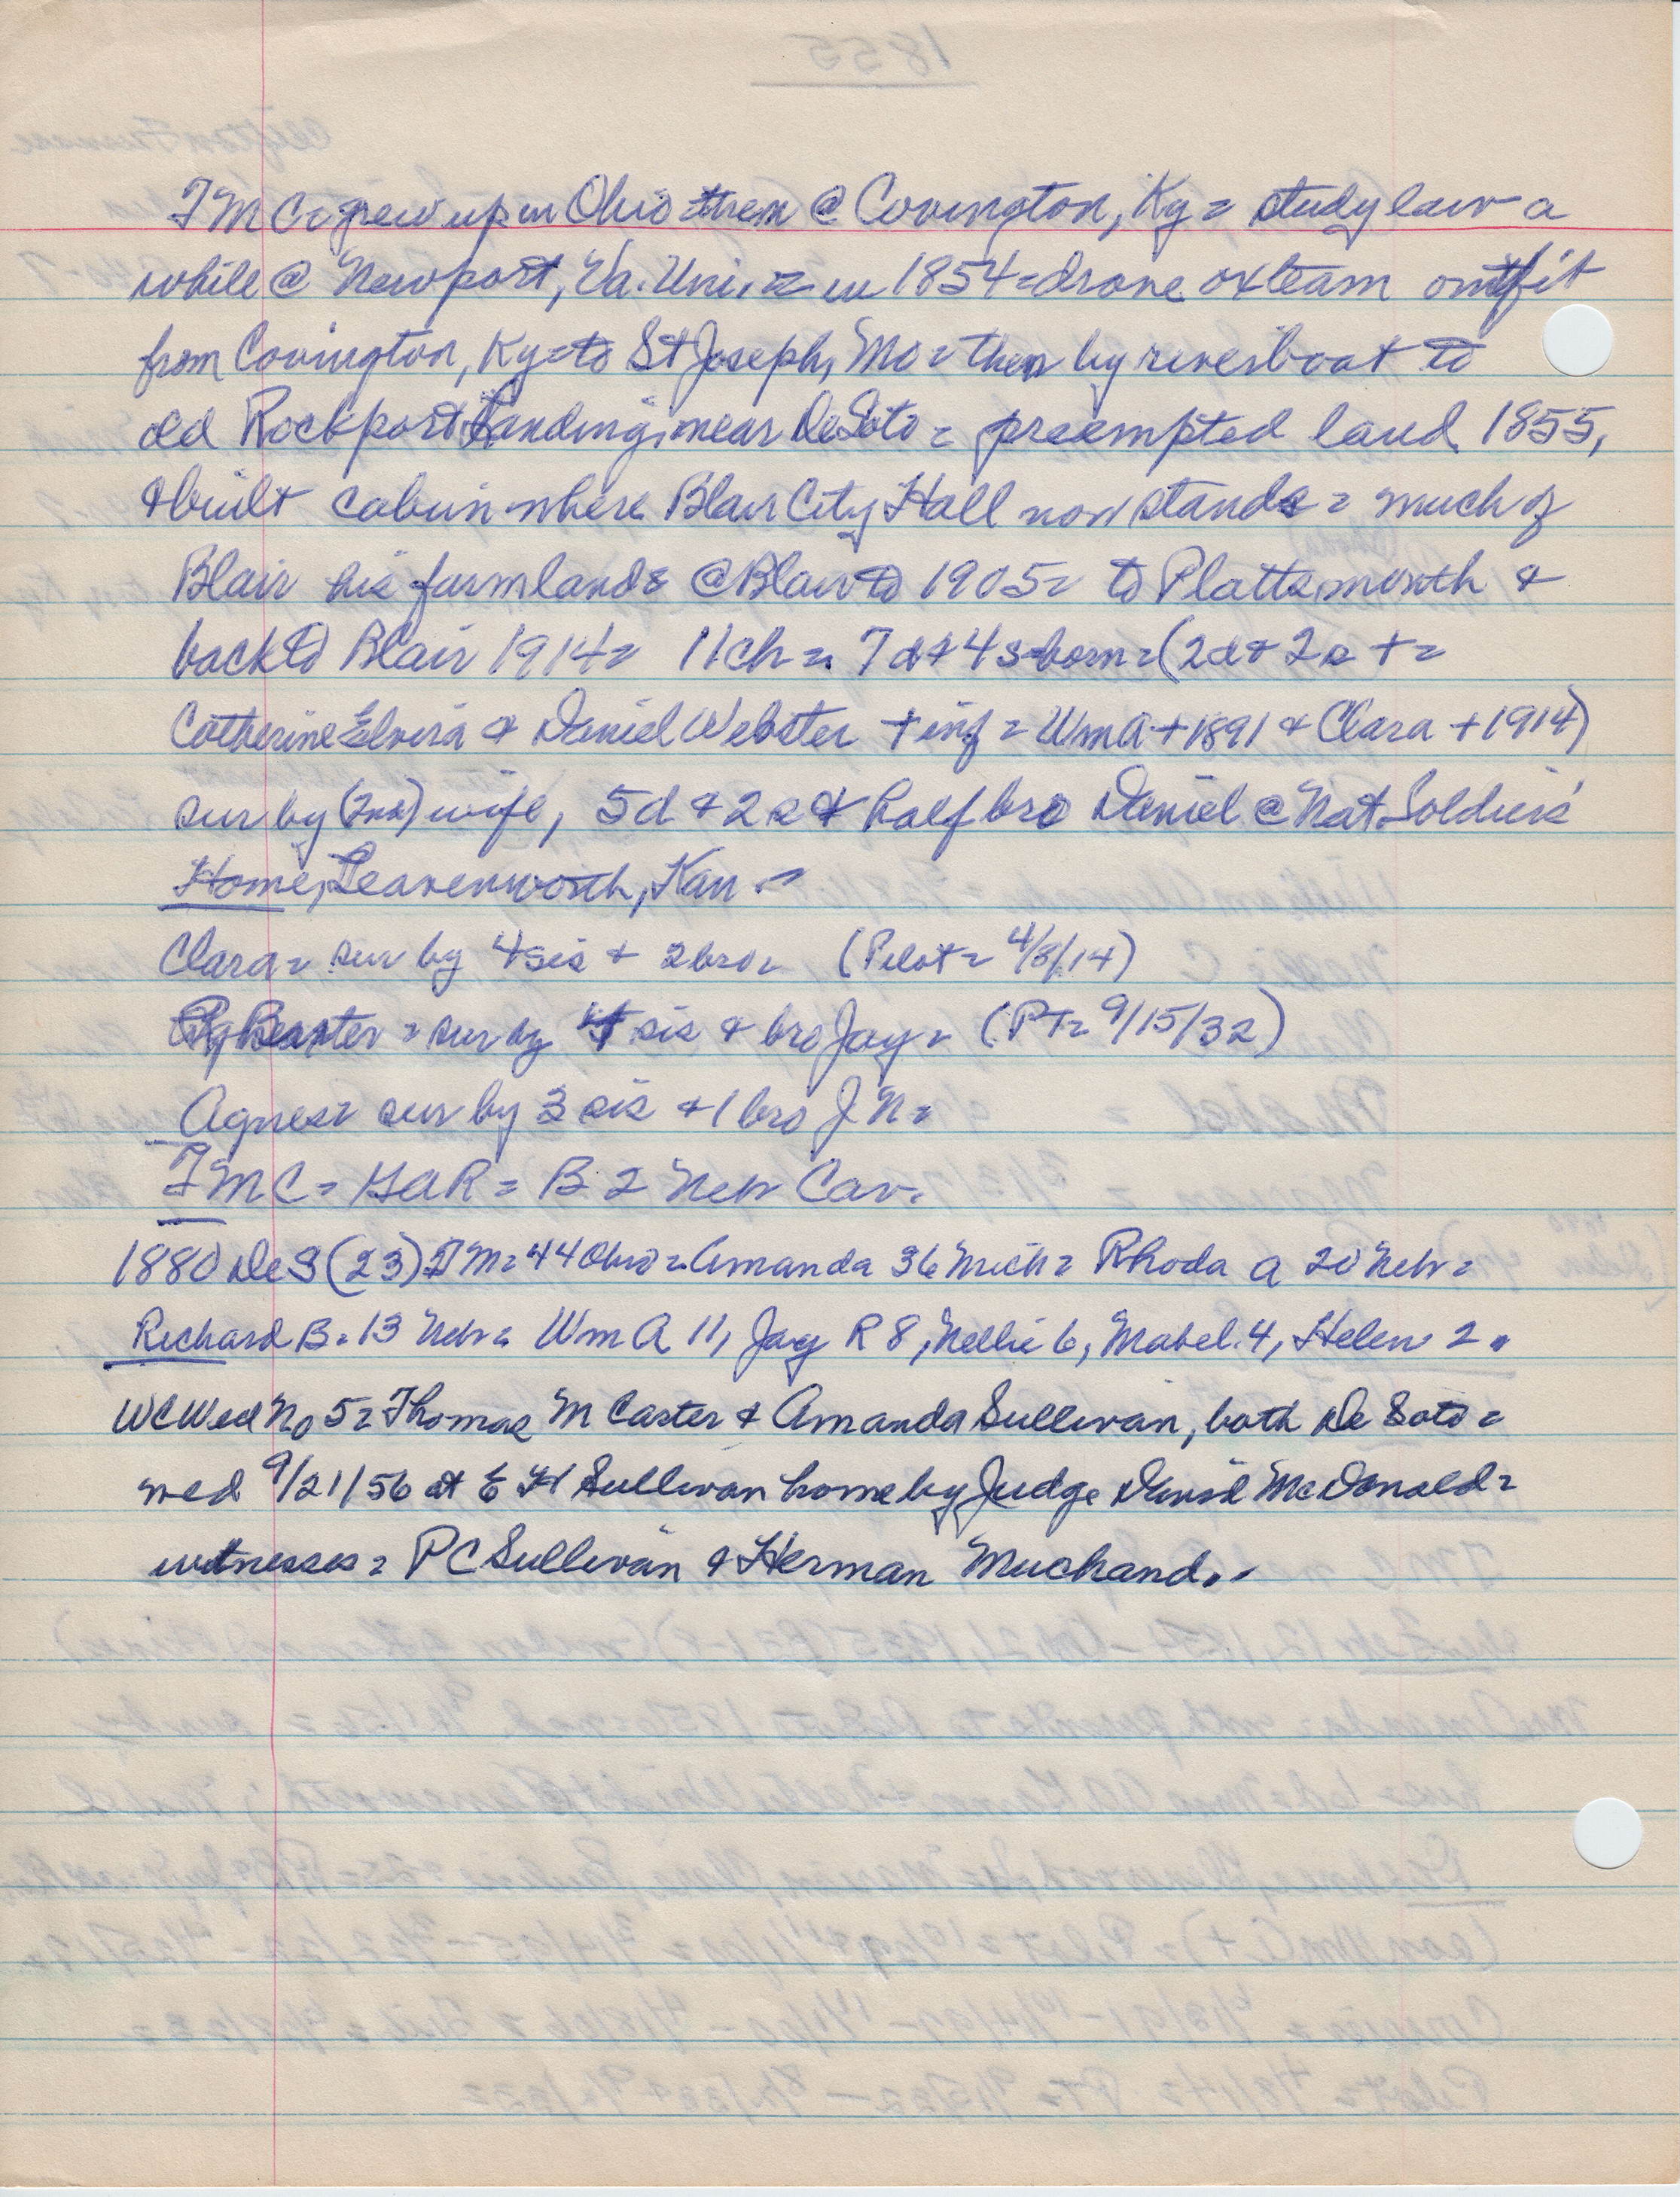 TMC = grew up in Ohio = then @ Covington, Ky = study law a
while @ Newport, Va. Uni. = in 1854 = drove ox team outfit
from Covington, Ky = to St Joseph, Mo = then by riverboat to
old Rockport Landing, near DeSoto = preempted land 1855,
& built cabin where Blair City Hall now stands = much of
Blair his farmlands @ Blair to 1905 = to Plattsmouth &
back to Blair 1914 = 11 ch = 7 d & 4 s born = (2d & 2s + =
Catherine Elvira & Daniel Webster + inf = Wm A + 1891 & Clara + 1914)
sur by (2nd) wife, 5d & 2s & half bro Daniel @ Nat. Soldiers'
Home, Leavenworth, Kan. =
Clara = sur by 4 sis + 2 bro = (Pilot = 4/8/14)
= sur by 4 sis & bro Jay = (PT = 9/15/32)
Agnes = sur by 3 sis & 1 bro J N =
TMC = GAR = B 2 Neb Cav.
1880 DeS (23) TM = 44 Ohio = Amanda 36 Mich = Rhoda A 20 Neb =
Richard B. 13 Neb = Wm A 11, Jay R 8, Nellie 6, Mabel 4, Helen 2.
WC Wed No 5 = Thomas M Carter & Amanda Sullivan, both De Soto =
wed 9/21/56 at E H Sullivan home by Judge David McDonald =
witnesses = P C Sullivan & Herman Muchand.